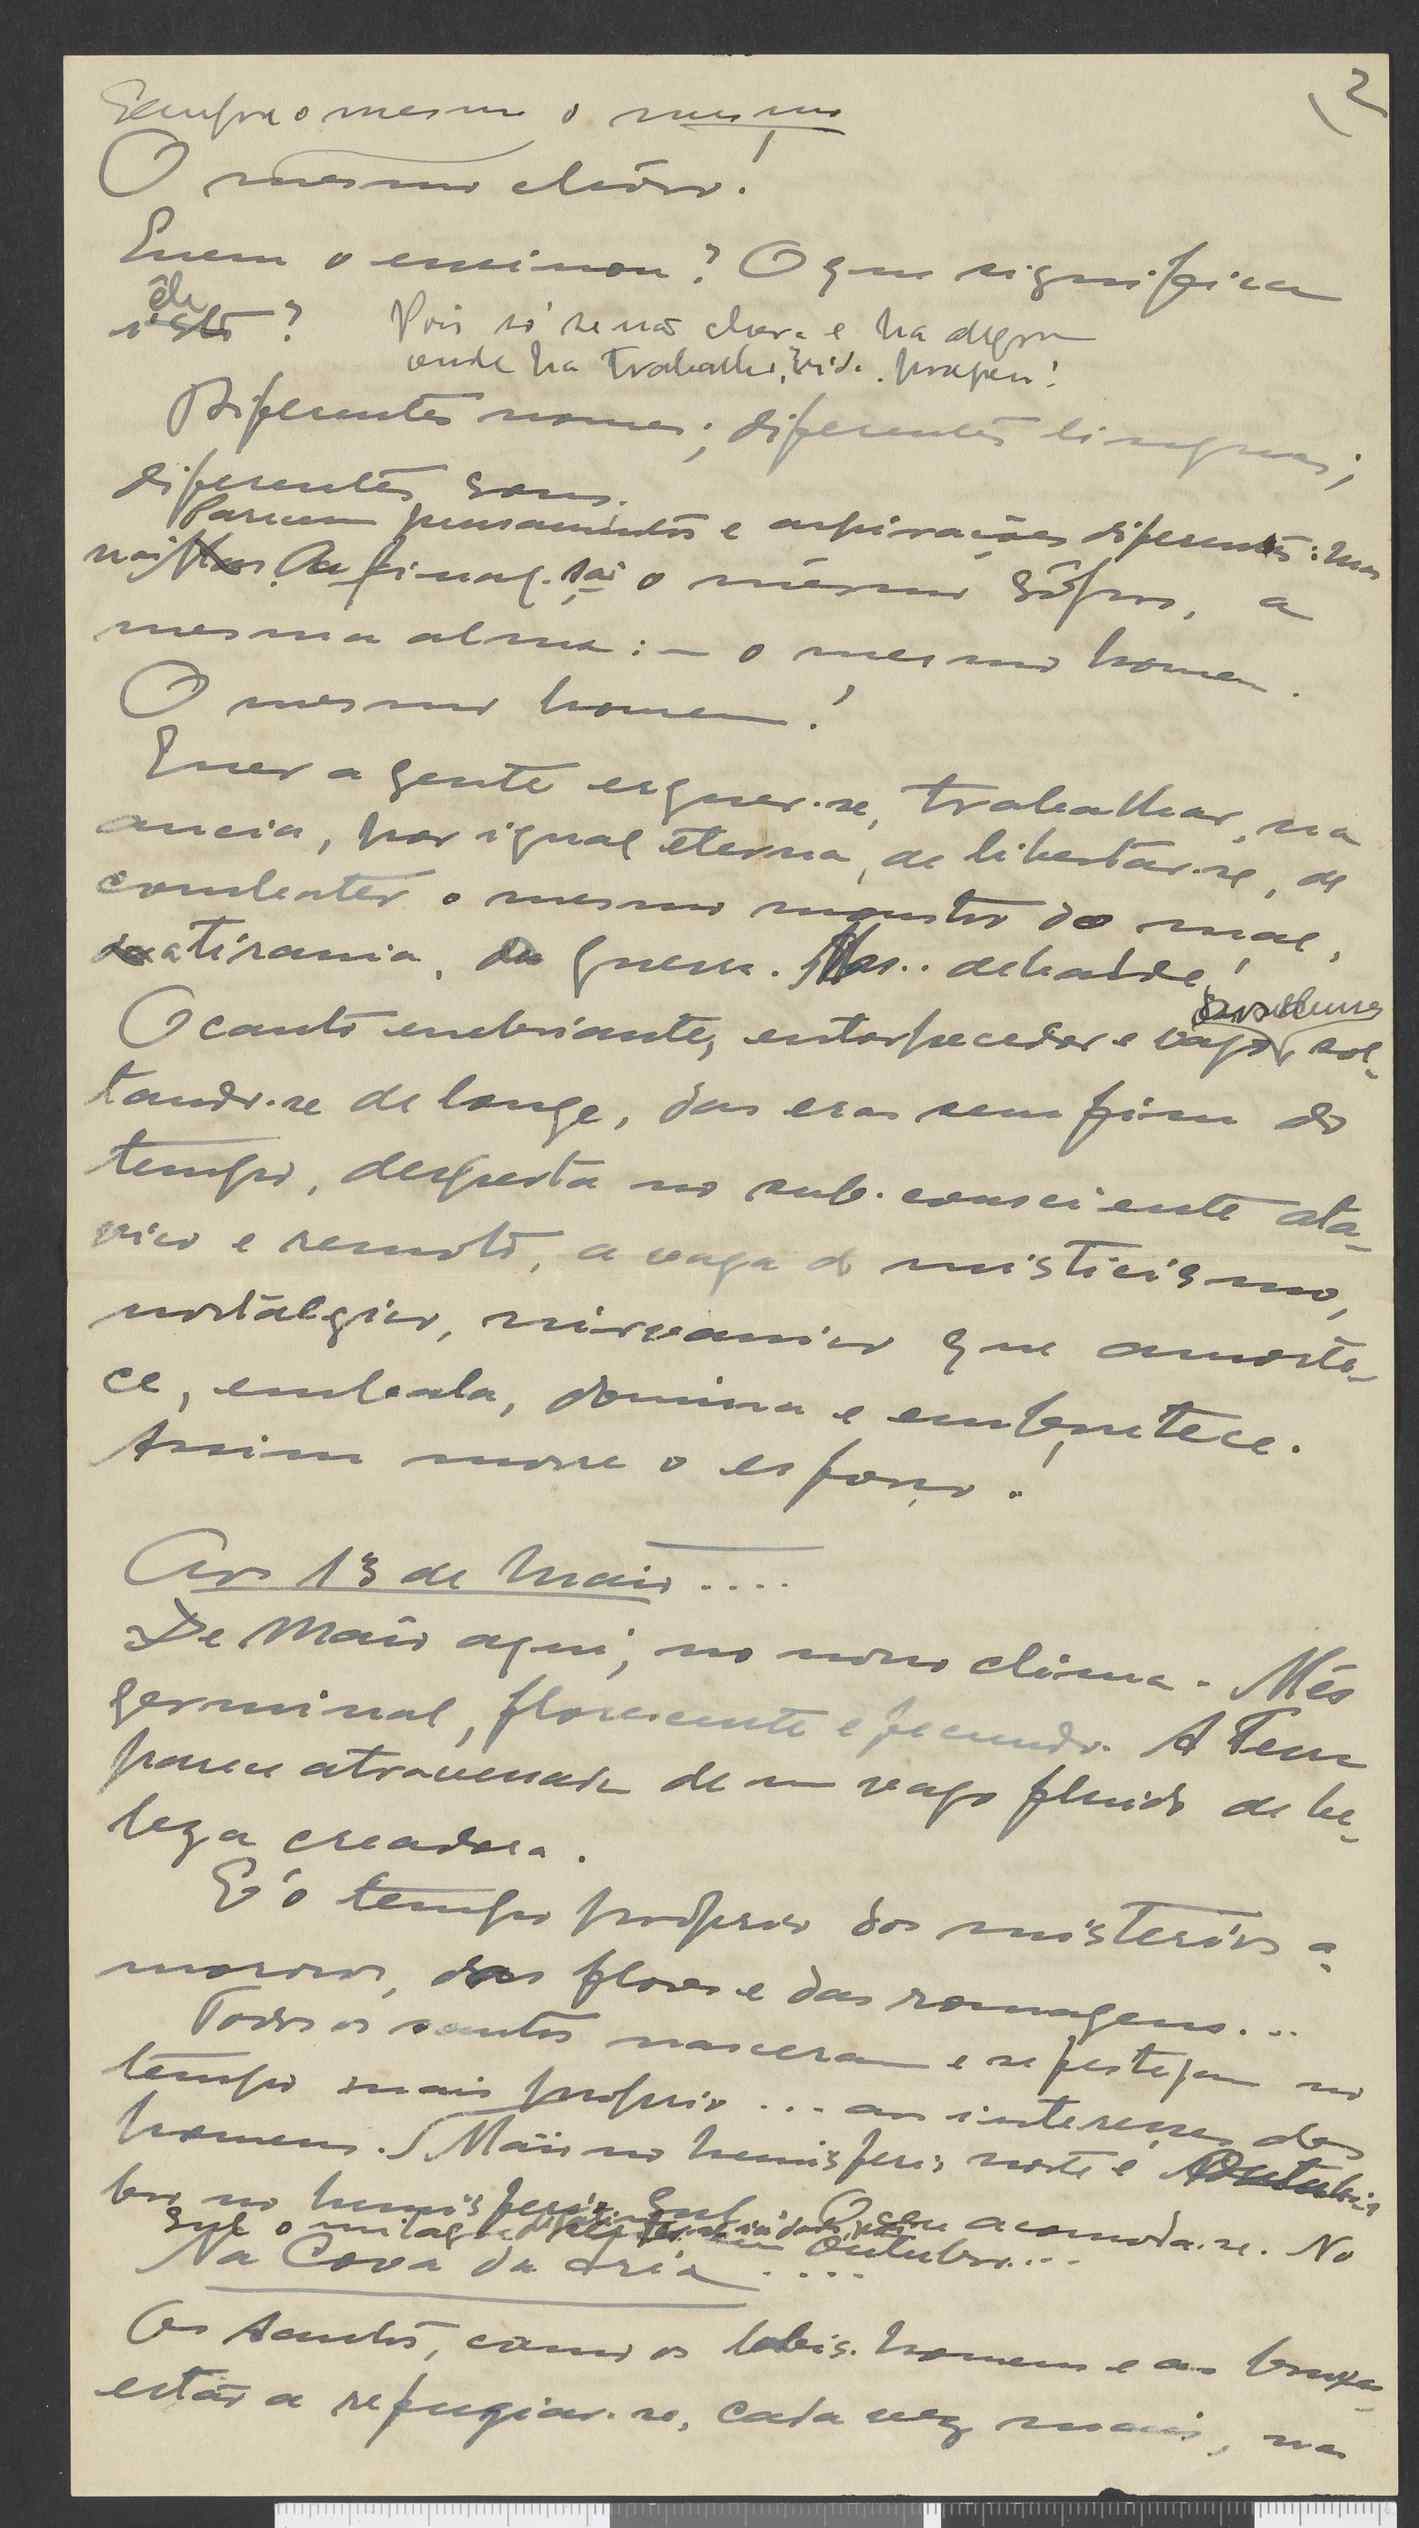 2
Sempre o mesmo o mesmo
O mesmo chôro!
Quem o ensinou? O que significa
êle
isto? Pois só se não chora e ha alegria
onde ha trabalho, vida
Diferentes nomes; diferentes linguas;
diferentes sons.
Parecem pensamentos e aspirações diferentes: Mas
não. Ao final. sai o mesmo sôpro, a
mesma alma: – o mesmo homem.
O mesmo homem!
Quer a gente erguer-se, trabalhar, na
ancia, por igual eterna, de libertar-se, de
combater o mesmo monstro do mal,
da tirania, da guerra. Mas.. debalde!
O canto enebriante, entorpecedor e vago, sol-
tando-se de longe, das eras sem fim do
tempo, desperta no sub-consciente ata-
vico e remoto, a vaga do misticismo,
nostalgico, nirvanico que amorte-
ce, embala, domina e embrutece.
Assim morre o esforço!
Aos 13 de Maio ....
De Maio aqui, no nosso clima. Mês
germinal, florescente e fecundo. A Terra
parece atravessada de um vago fluido de be-
leza creadora.
E' o tempo proprio dos misterios a-
morosos, das flores e das romagens...
Todos os santos nasceram e se festejam no
tempo mais proprio ... aos interesses dos
homens. Maio no hemisferio norte e Outubro
no hemisferio Sul. O ceu acomoda-se. No
Sul o milagre em Outubro....
Na Cova da Iria ....
Os Santos, como os lobis-homens e as bruxas
estão a refugiar-se, cada vez mais, nas